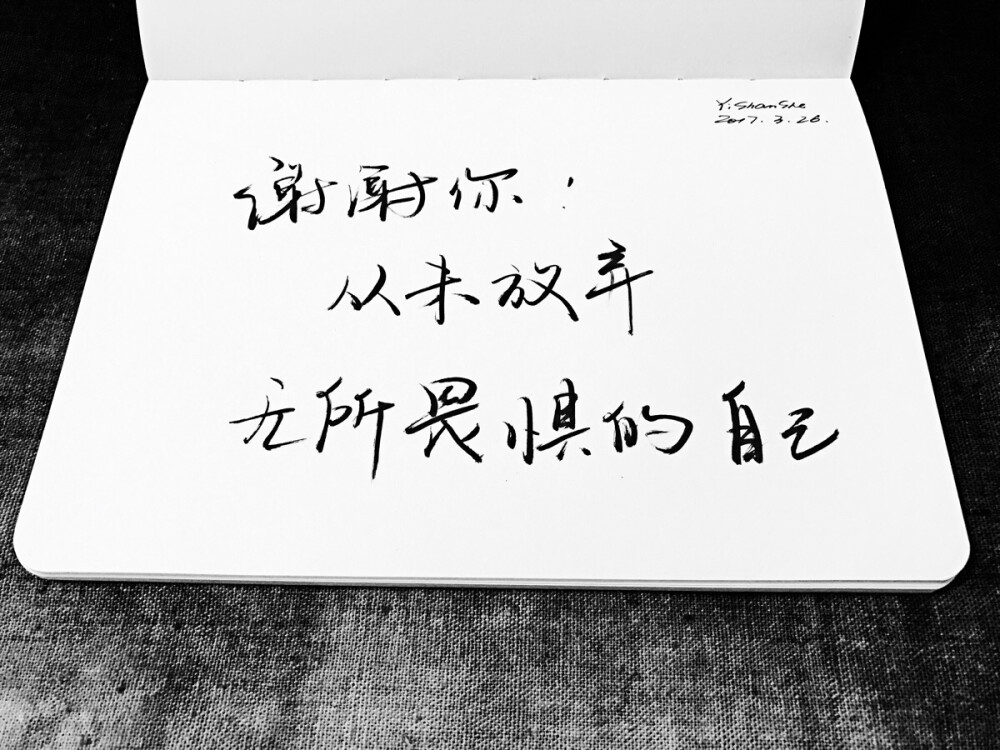 Yishanshe
2017.3.26.
谢谢你！
从未放弃
无所畏惧的自己